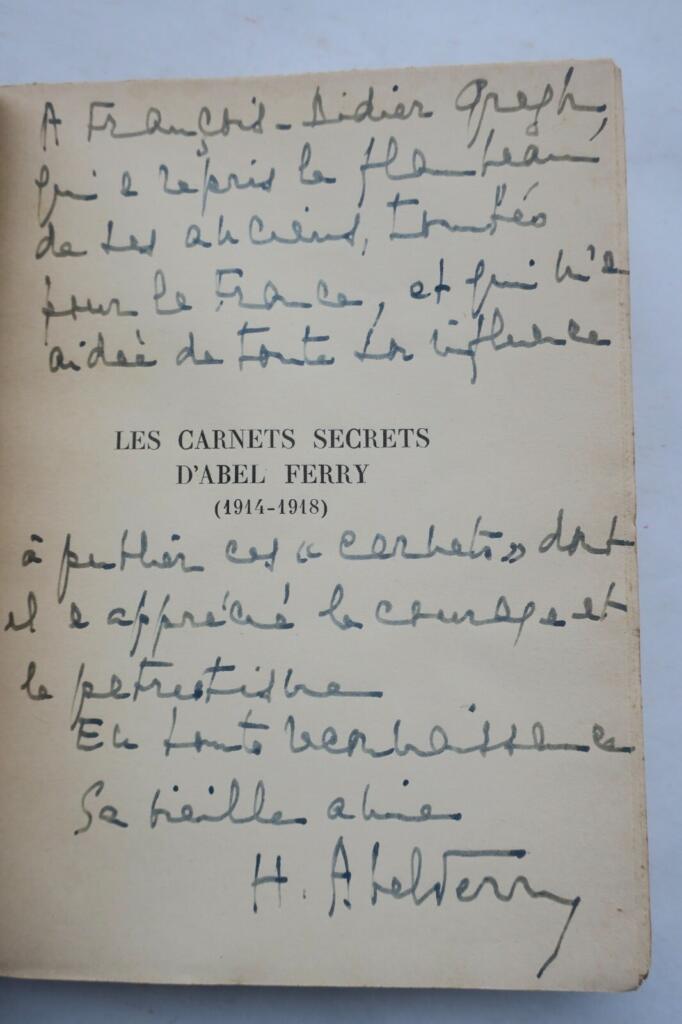 A François-Didier Gregh,
qui a repris le flambeau
de ses anciens, tombés
pour la France, et qui m'a
aidée de toute son influence
LES CARNETS SECRETS
D'ABEL FERRY
(1914-1918)
à publier ces « carnets » dont
il a apprécié le courage et
le patriotisme
En toute reconnaissance
Sa vieille amie
H. Abel Ferry